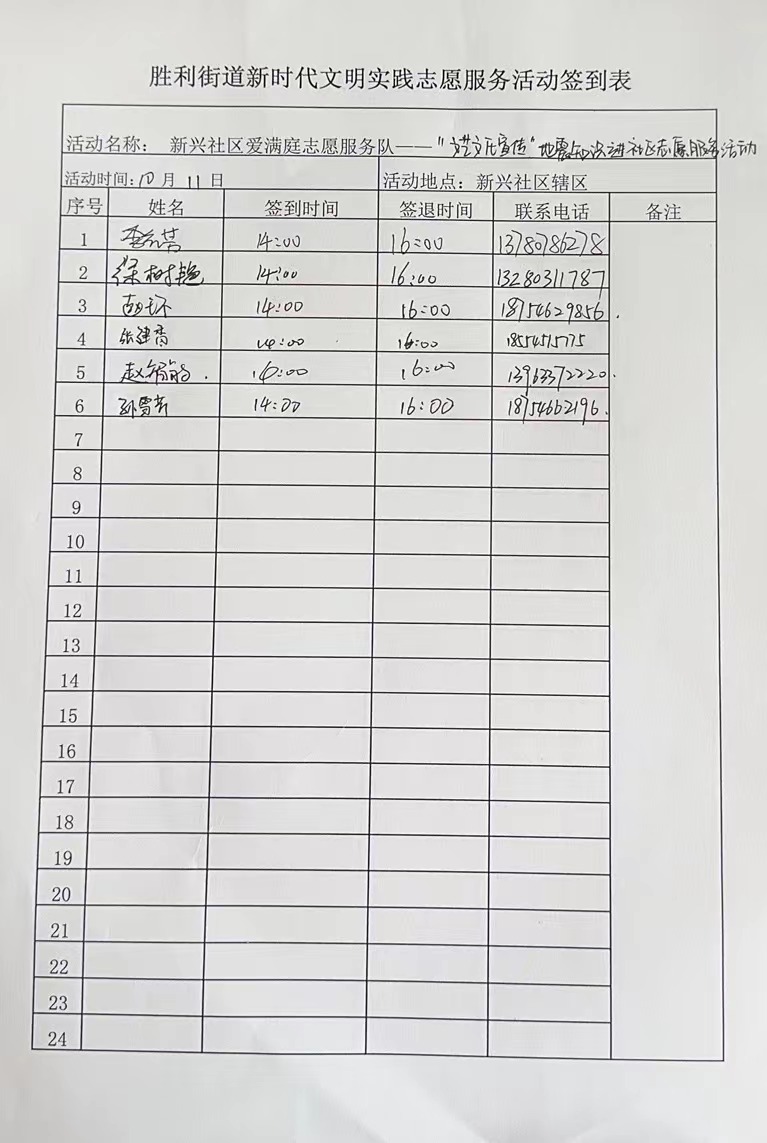 胜利街道新时代文明实践志愿服务活动签到表
活动名称： 新兴社区爱满庭志愿服务队——“ 宣传”地震知识进社区志愿服务活动
活动时间：10 月 11 日 活动地点：新兴社区辖区
序号 姓名 签到时间 签退时间 联系电话 备注
1 14:00 16:00 13780786278
2 徐树艳 14:00 16:00 13280311787
3 14:00 16:00 18754629856
4 张建香 14:00 16:00
5 赵 16:00 16:00 13963372220
6 孙雪芳 14:00 16:00 18754662196
7
8
9
10
11
12
13
14
15
16
17
18
19
20
21
22
23
24